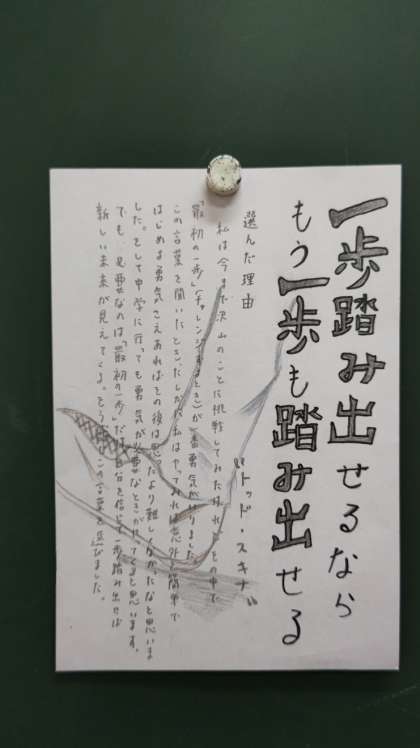 一歩踏み出せるなら
もう一歩も踏み出せる
"トッド・スキナー"
選んだ理由
私は今まで沢山のことに挑戦してみたけれどその中で
「最初の一歩」(チャレンジするとき)が一番勇気がいりました。
この言葉を聞いたときたしかに私はやってみれば意外と簡単で
はじめる勇気さえあればその後は思ったより難しくなかったなと思いま
した。そして中学に行っても勇気が必要なときがやってくると思います。
でも、必要なのは「最初の一歩」だけ自分を信じて一歩踏み出せば
新しい未来が見えてくる。そう思いこの言葉を選びました。